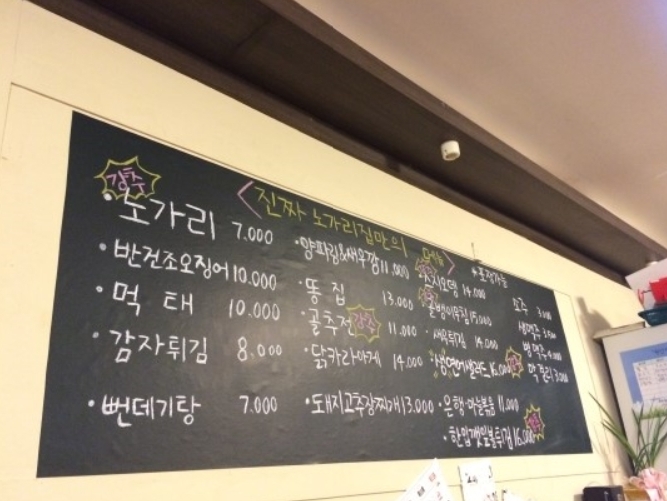 강추
<진짜 노가리집만의 >
*포장가능
·노가리 7.000
·반건조오징어 10.000
·먹태 10.000
·감자튀김 8.000
·뻔데기탕 7.000
·양파링&새우깡 11.000
·똥집 13.000
·골추전 강추 11.000
·닭카라아게 14.000
·돼지고추장찌개 13.000
14.000
15.000
·새우튀김 14.000
·생연어샐러드 16.000
·은행·마늘볶음 11.000
·한입깻잎볼튀김 16.000
소주
생맥주
병맥주 4.000
막걸리 3.000